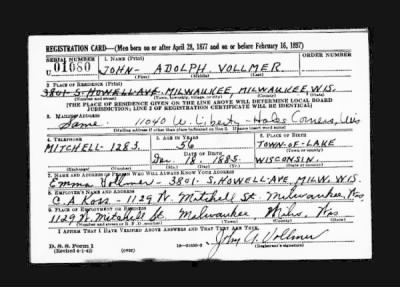 REGISTRATION CARD—(Men born on or after April 28, 1877 and on or before February 16, 1897)
SERIAL NUMBER 1. NAME (Print) ORDER NUMBER
U 01080 JOHN - ADOLPH VOLLMER
(First) (Middle) (Last)
2. PLACE OF RESIDENCE (Print)
3801 S. HOWELL AVE. MILWAUKEE, MILWAUKEE, WIS.
(Number and street) (Town, township, village, or city) (County) (State)
[THE PLACE OF RESIDENCE GIVEN ON THE LINE ABOVE WILL DETERMINE LOCAL BOARD
JURISDICTION; LINE 2 OF REGISTRATION CERTIFICATE WILL BE IDENTICAL]
3. MAILING ADDRESS
Same 11040 W. Liberty - Hales Corners, Wis
[Mailing address if other than place indicated on line 2. If same insert word same]
4. TELEPHONE 5. AGE IN YEARS 6. PLACE OF BIRTH
56 TOWN-OF-LAKE
MITCHELL-1283. DATE OF BIRTH (Town or county)
Dec. 18. 1885. WISCONSIN.
(Mo.) (Day) (Yr.) (State or country)
7. NAME AND ADDRESS OF PERSON WHO WILL ALWAYS KNOW YOUR ADDRESS
Emma Vollmer - 3801 S. HOWELL-AVE, MILW. WIS.
8. EMPLOYER'S NAME AND ADDRESS
C. A. Ross - 1129 W. Mitchell St. Milwaukee, Wis
9. PLACE OF EMPLOYMENT OR BUSINESS
1129 W. Mitchell St. Milwaukee, Wis
(Number and street or R. F. D. number) (Town) (County) (State)
I AFFIRM THAT I HAVE VERIFIED ABOVE ANSWERS AND THAT THEY ARE TRUE.
D. S. S. Form 1
(Revised 4-1-42) (over) John A Vollmer
(Registrant's signature)